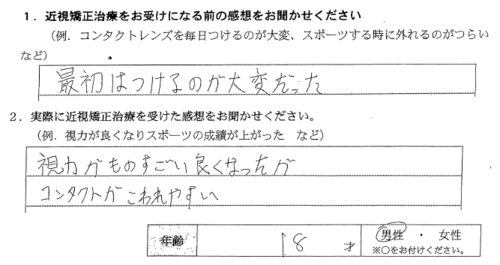 1．近視矯正治療をお受けになる前の感想をお聞かせください
（例．コンタクトレンズを毎日つけるのが大変、スポーツする時に外れるのがつらい
など）
最初はつけるのが大変だった
2．実際に近視矯正治療を受けた感想をお聞かせください。
（例．視力が良くなりスポーツの成績が上がった　など）
視力がものすごい良くなったが
コンタクトがこわれやすい
年齢　18　才　男性　・　女性
※○をお付けください。